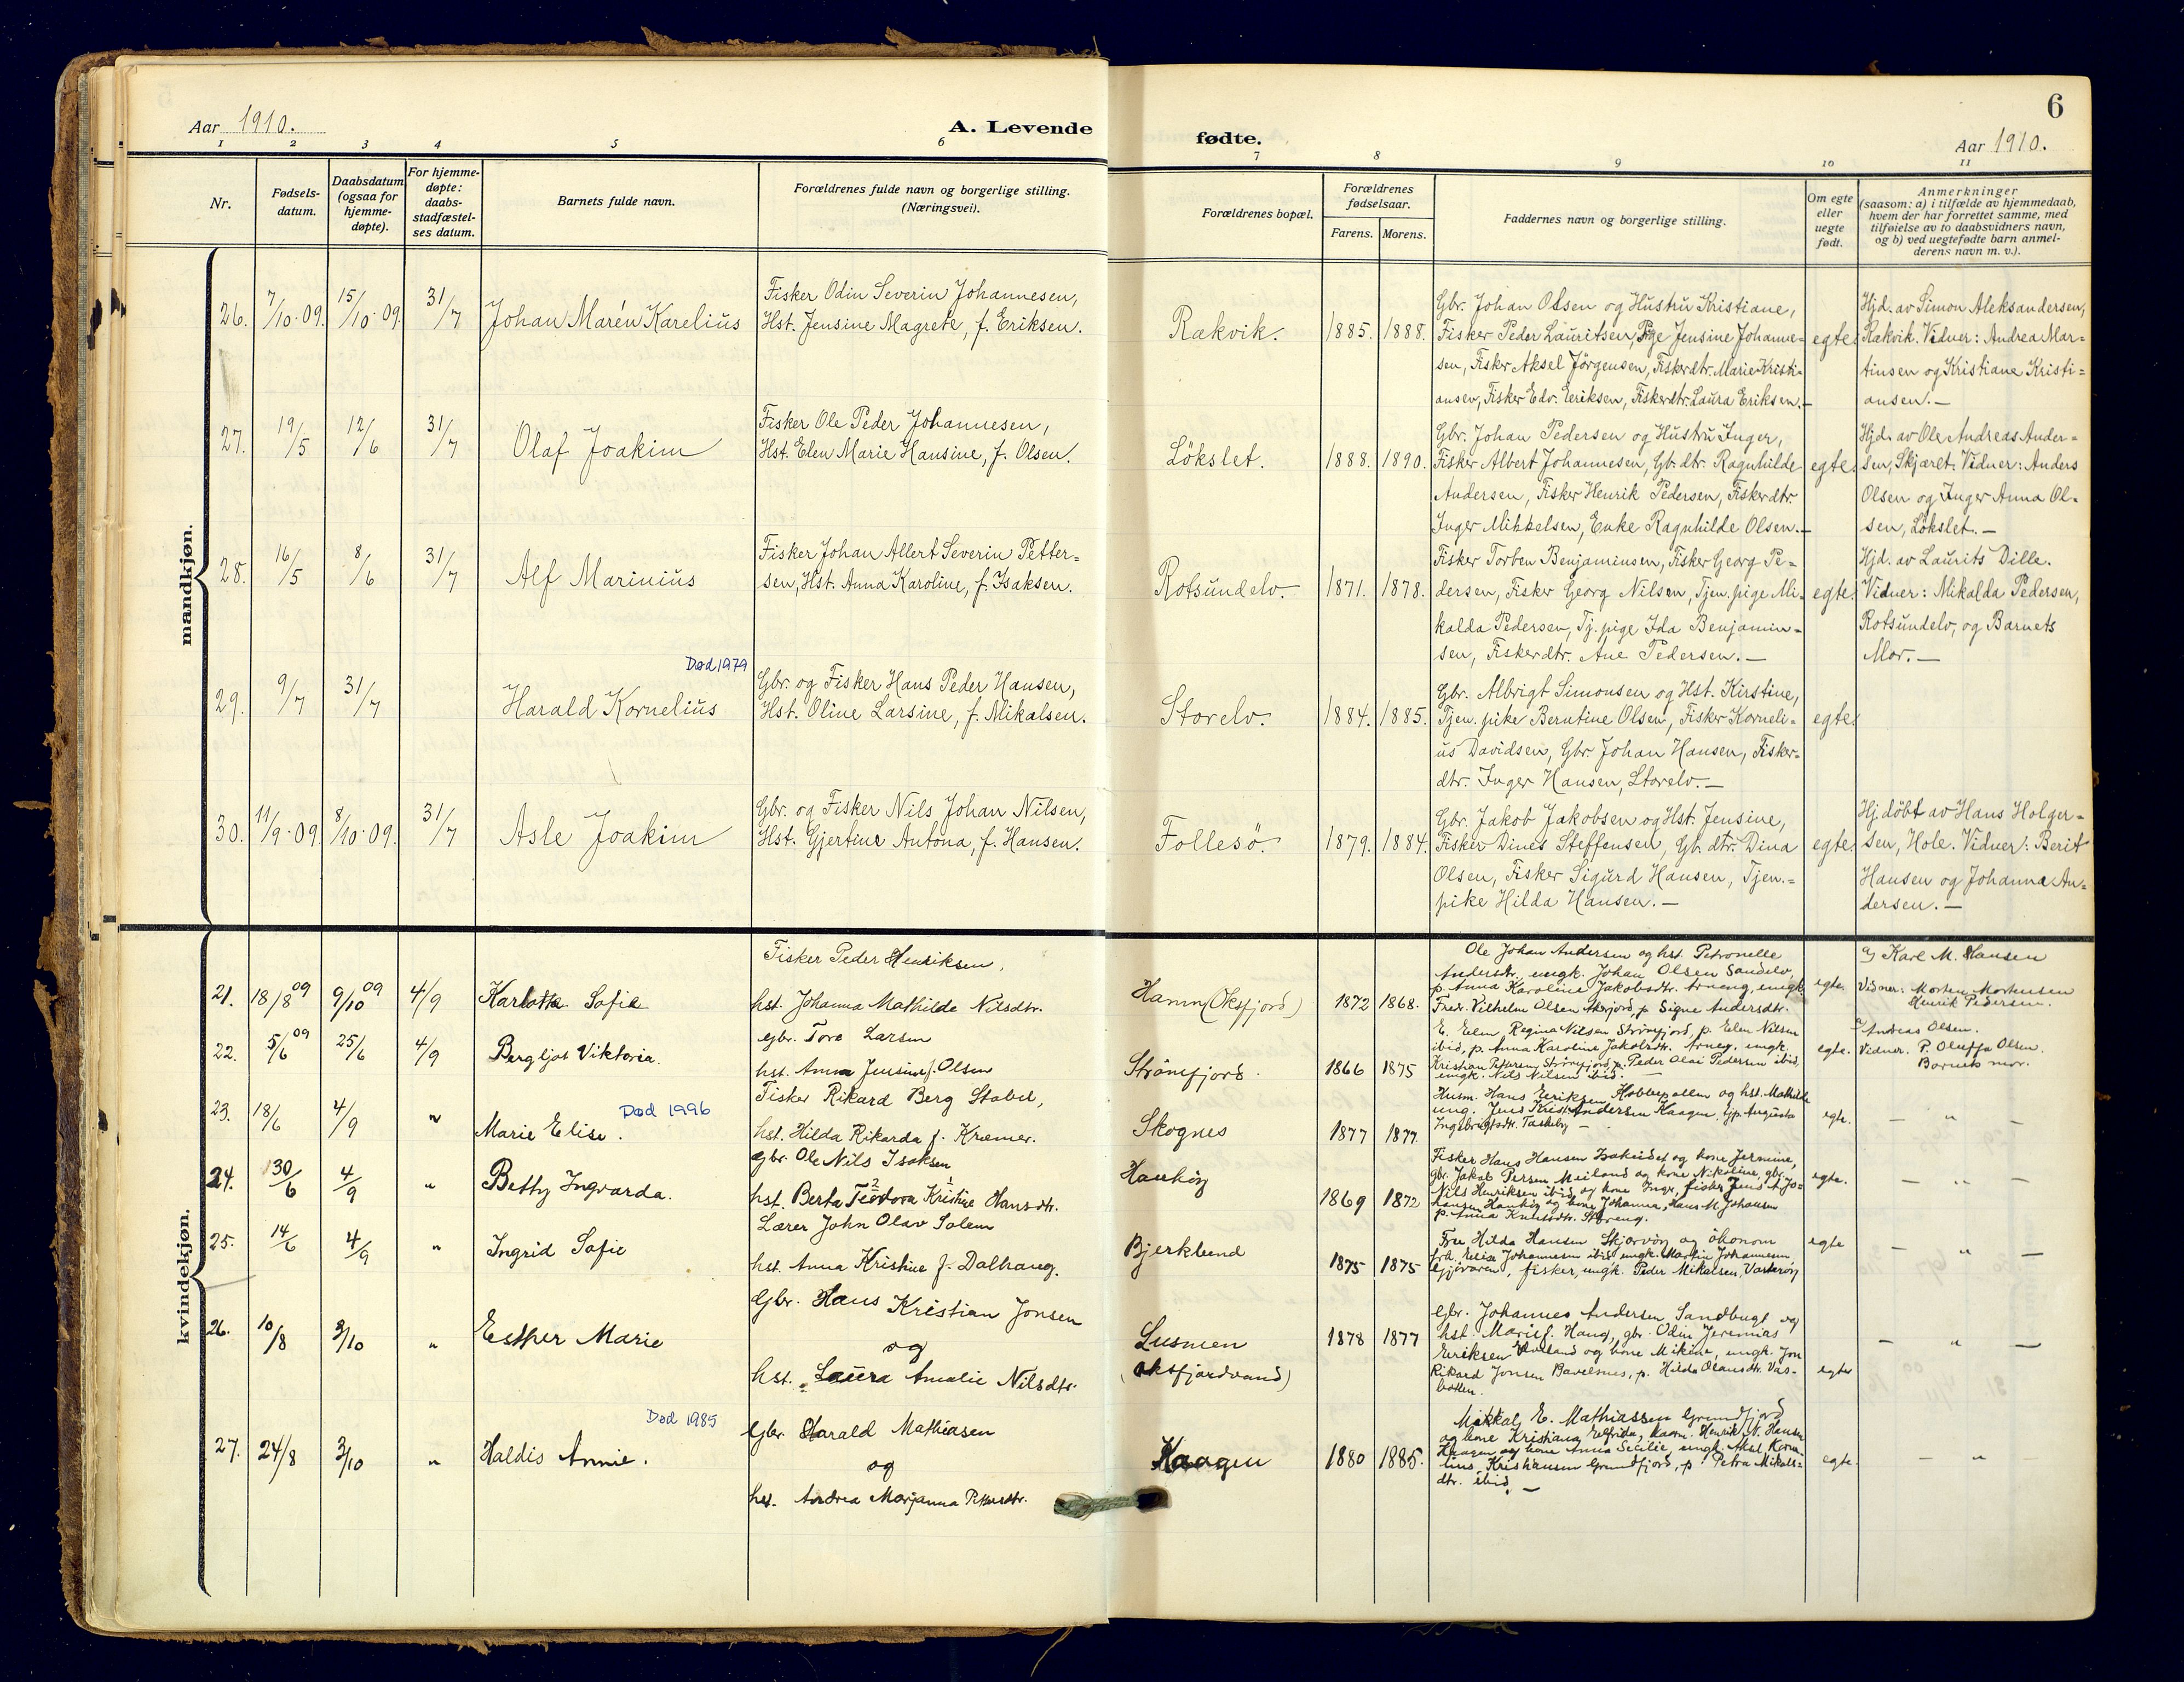 Aar 1910.
A. Levende
fødte.
6
Aar 1910.
1 2 3 4 5 6 7 8 9 10 11
Nr.
Fødsels-
datum.
Daabsdatum
(ogsaa for
hjemme-
døpte).
For hjemme-
døpte:
daabs-
stadfæstel-
ses datum.
Barnets fulde navn.
Forældrenes fulde navn og borgerlige stilling.
(Næringsvei).
Forældrenes bopæl.
Forældrenes
fødselsaar.
Farens. Morens.
Faddernes navn og borgerlige stilling.
Om egte
eller
uegte
født.
Anmerkninger
(saasom: a) i tilfælde av hjemmedaab,
hvem der har forrettet samme, med
tilføielse av to daabsvidners navn,
og b) ved uegtefødte barn anmel-
derens navn m. v.).
mandkjøn.
26. 7/10·09. 15/10·09. 31/7
Johan Marén Karelius
Fisker Odin Severin Johannesen,
Hst. Jensine Magrete, f. Eriksen.
Rakvik. 1885. 1888.
Gbr. Johan Olsen og Hustru Kristiane,
Fisker Peder Lauritsen, Pige Jensine Johanne=
sen, Fisker Aksel Jörgensen, Fiskerdtr. Marie Kristi=
ansen, Fisker Edv. Eeriksen, Fiskerdtr. Laura Eriksen.—
egte.
Hjd. av Simon Aleksandersen,
Rakvik. Vidner: Andrea Mar=
tinsen og Kristiane Kristi=
ansen.—
27. 19/5 12/6 31/7
Olaf Joakim
Fisker Ole Peder Johannesen,
Hst. Elen Marie Hansine, f. Olsen.
Lökslet. 1888. 1890.
Gbr. Johan Pedersen og Hustru Inger,
Fisker Albert Johannesen, Gb. dtr. Ragnhilde
Andersen, Fisker Henrik Pedersen, Fiskerdtr
Inger Mikkelsen, Enke Ragnhilde Olsen.—
egte.
Hjd. av Ole Andreas Ander=
sen, Skjæret. Vidner: Anders
Olsen og Inger Anna Ol=
sen, Lökslet.—
28. 16/5 8/6 31/7
Alf Marinius
Fisker Johan Allert Severin Petter=
sen, Hst. Anna Karoline, f. Isaksen.
Rotsundelv. 1871. 1878.
Fisker Torben Benjaminsen, Fisker Georg Pe=
dersen, Fisker Georg Nilsen, Tjen. pige Mi=
kalda Pedersen, Tj. pige Ida Benjamin=
sen, Fiskerdtr. Ane Pedersen.—
egte.
Hjd. av Laurits Dille.
Vidner: Mikalda Pedersen,
Rotsundelv, og Barnets
Mor.—
29. 9/7 31/7
Død 1979
Harald Kornelius
Gbr. og Fisker Hans Peder Hansen,
Hst. Oline Larsine, f. Mikalsen.
Storelv. 1884. 1885.
Gbr. Albrigt Simonsen og Hst. Kirstine,
Tjen. pike Berntine Olsen, Fisker Korneli=
us Davidsen, Gbr. Johan Hansen, Fisker=
dtr. Inger Hansen, Storelv.—
egte.
30. 11/9·09. 8/10·09. 31/7
Asle Joakim
Gbr. og Fisker Nils Johan Nilsen,
Hst. Gjertine Antona, f. Hansen.
Follesö. 1879. 1884.
Gbr. Jakob Jakobsen og Hst. Jensine,
Fisker Dines Steffensen, Gb. dtr. Dina
Olsen, Fisker Sigurd Hansen, Tjen.=
pike Hilda Hansen.—
egte.
Hj. döbt av Hans Holger=
sen, Hole. Vidner: Berit
Hansen og Johanna An=
dersen.—
kvindekjøn.
21. 18/8 09 9/10 09 4/9
Karlotta Sofie
Fisker Peder Henriksen,
hst. Johanna Mathilde Nilsdtr.
Hamn (Oksfjord) 1872 1868.
Ole Johan Andersen og hst. Petronelle
Andersdtr., ungk. Johan Olsen Sandelv,
p. Anna Karoline Jakobsdtr. Arneng, ungk.
Fredr. Vilhelm Olsen p. Signe Andersdtr.
egte.
a) Karl M. Hansen
Vidner: Morten Mortensen
Henrik Pedersen.
22. 5/6 09 25/6 4/9
Bergljot Viktoria.
gbr. Tore Larsen
hst. Anna Jensine f. Olsen
Strømfjord. 1866 1875
E. Elen, Regina Nilsen Strømfjord, p. Elen Nilsen
ibid, p. Anna Karoline Jakobsdtr. Arneng, ungk.
Kristian Pettersen Strømfjord, p. Peder Olai Pedersen ibid,
ungk. Nils Nilsen ibid.—
egte.
a) Andreas Olsen.
Vidner. P. Oluffa Olsen.
Barnets mor.
23. 18/6 4/9 "
Død 1996
Marie Elise.
Fisker Rikard Berg Stabel,
hst. Hilda Rikarda f. Kræmer.
Skognes 1877 1877
Husm. Hans Eeriksen Hobbepollen og hst. Mathilde
ung. Jens Krist. Andersen Kaagen, Augusta
Ingebrigtsdtr. Taskeby —
egte. — " —
24. 30/6 4/9 "
Betty Ingvarda.
gbr. Ole Nils Isaksen
hst. Berta Teodora 2 Kristine 1 Hansdtr.
Haukøy 1869 1872
Fisker Hans Hansen og kone Jermine,
gbr. Jakob Persen Meiland og kone Nikoline, gbr.
Nils Henriksen ibid og kone Inger, fisker Jens A. Jo=
hansen Haukøy og kone Johanna, Hans M. Johansen
p. Anna Knutsdtr. Storeng.
egte. — " —
25. 14/6 4/9 "
Ingrid Sofie
Lærer John Olav Solem
hst. Anna Kristine f. Dalhaug.
Bjerklund 1875 1875
Fru Hilda Hansen Skjærvøy og økonom
frk. Elise Johannesen ibid, ungk. Martin Johannesen
Gjøvaren, fisker, ungk. Peder Mikalsen, Vorterøy
egte — " —
26. 10/8 2/10 "
Esther Marie
Gbr. Hans Kristian Jonsen
og
hst. Laura Amalie Nilsdtr.
Lusmen
(Oksfjordvand) 1878 1877
Gbr. Johannes Andersen, Sandbugt og
hst. Marie f. Haug, gbr. Odin Jeremias
Eeriksen og kone Mikine, ungk. Jon
Rikard Jonsen Bavelsnes, p. Hilda Olausdtr. Vas-
botten.
egte — " —
27. 24/8 2/10 "
Død 1985
Haldis Annie.
Gbr. Harald Mathiasen
og
hst. Andrea Marjanna Pettersdtr.
Kaagen 1880 1885.
Mikkal E. Mathiassen Grundfjord
og kone Kristiana Elfrida, Henrik N. Hansen
Kaagen og kone Anna Secilie, ungk. Aksel Korne-
lius Kristiansen Grundfjord, p. Petra Mikals=
dtr. ibid.—
egte. — " —